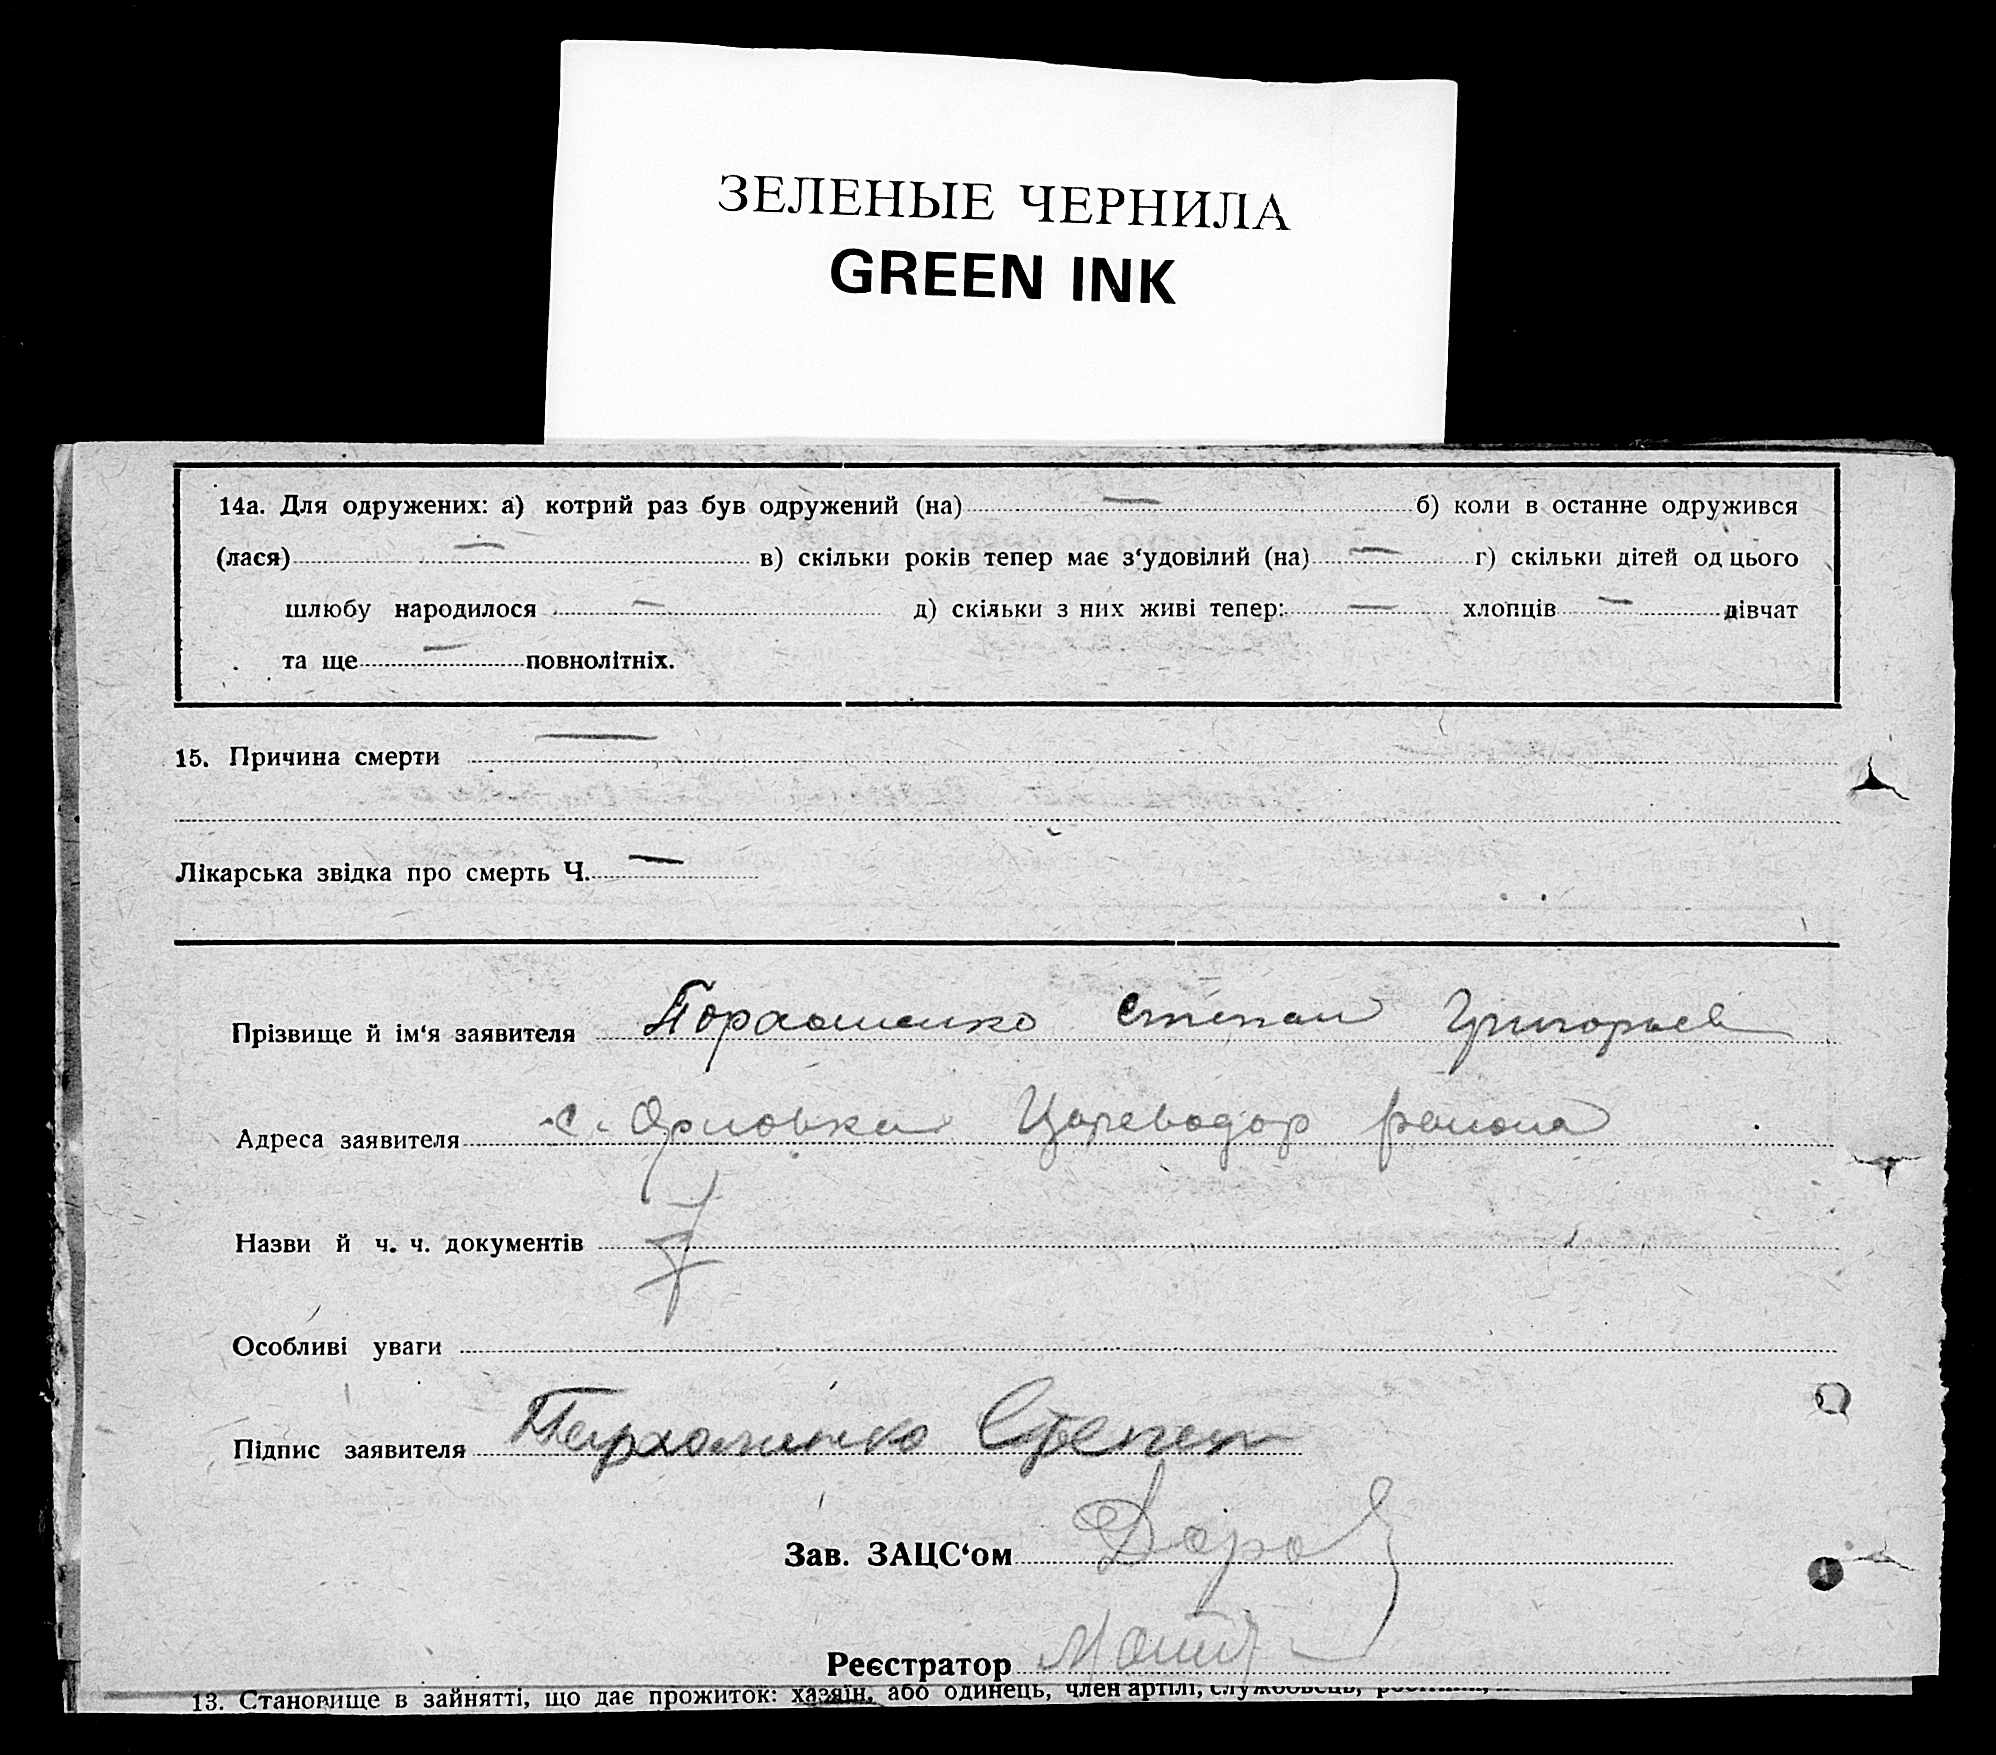 ЗЕЛЕНЫЕ ЧЕРНИЛА
GREEN INK
14а. Для одружених: а) котрий раз був одружений (на) — б) коли в останне одружився
(лася) — в) скільки років тепер має з‘удовілий (на) — г) скільки дітей од цього
шлюбу народилося — д) скільки з них живі тепер: — хлопців — дівчат
та ще — повнолітніх.
15. Причина смерти —
Лікарська звідка про смерть Ч. —
Прізвище й ім‘я заявителя Пархоменко Степан Григорьев
Адреса заявителя с. Орловка района
Назви й ч. ч. документів
Особливі уваги
Підпис заявителя Пархоменко Степан
Зав. ЗАЦС‘ом
Реєстратор
13. Становище в зайнятті, що дає прожиток: хазяїн, або одинець, член артілі, службовець,